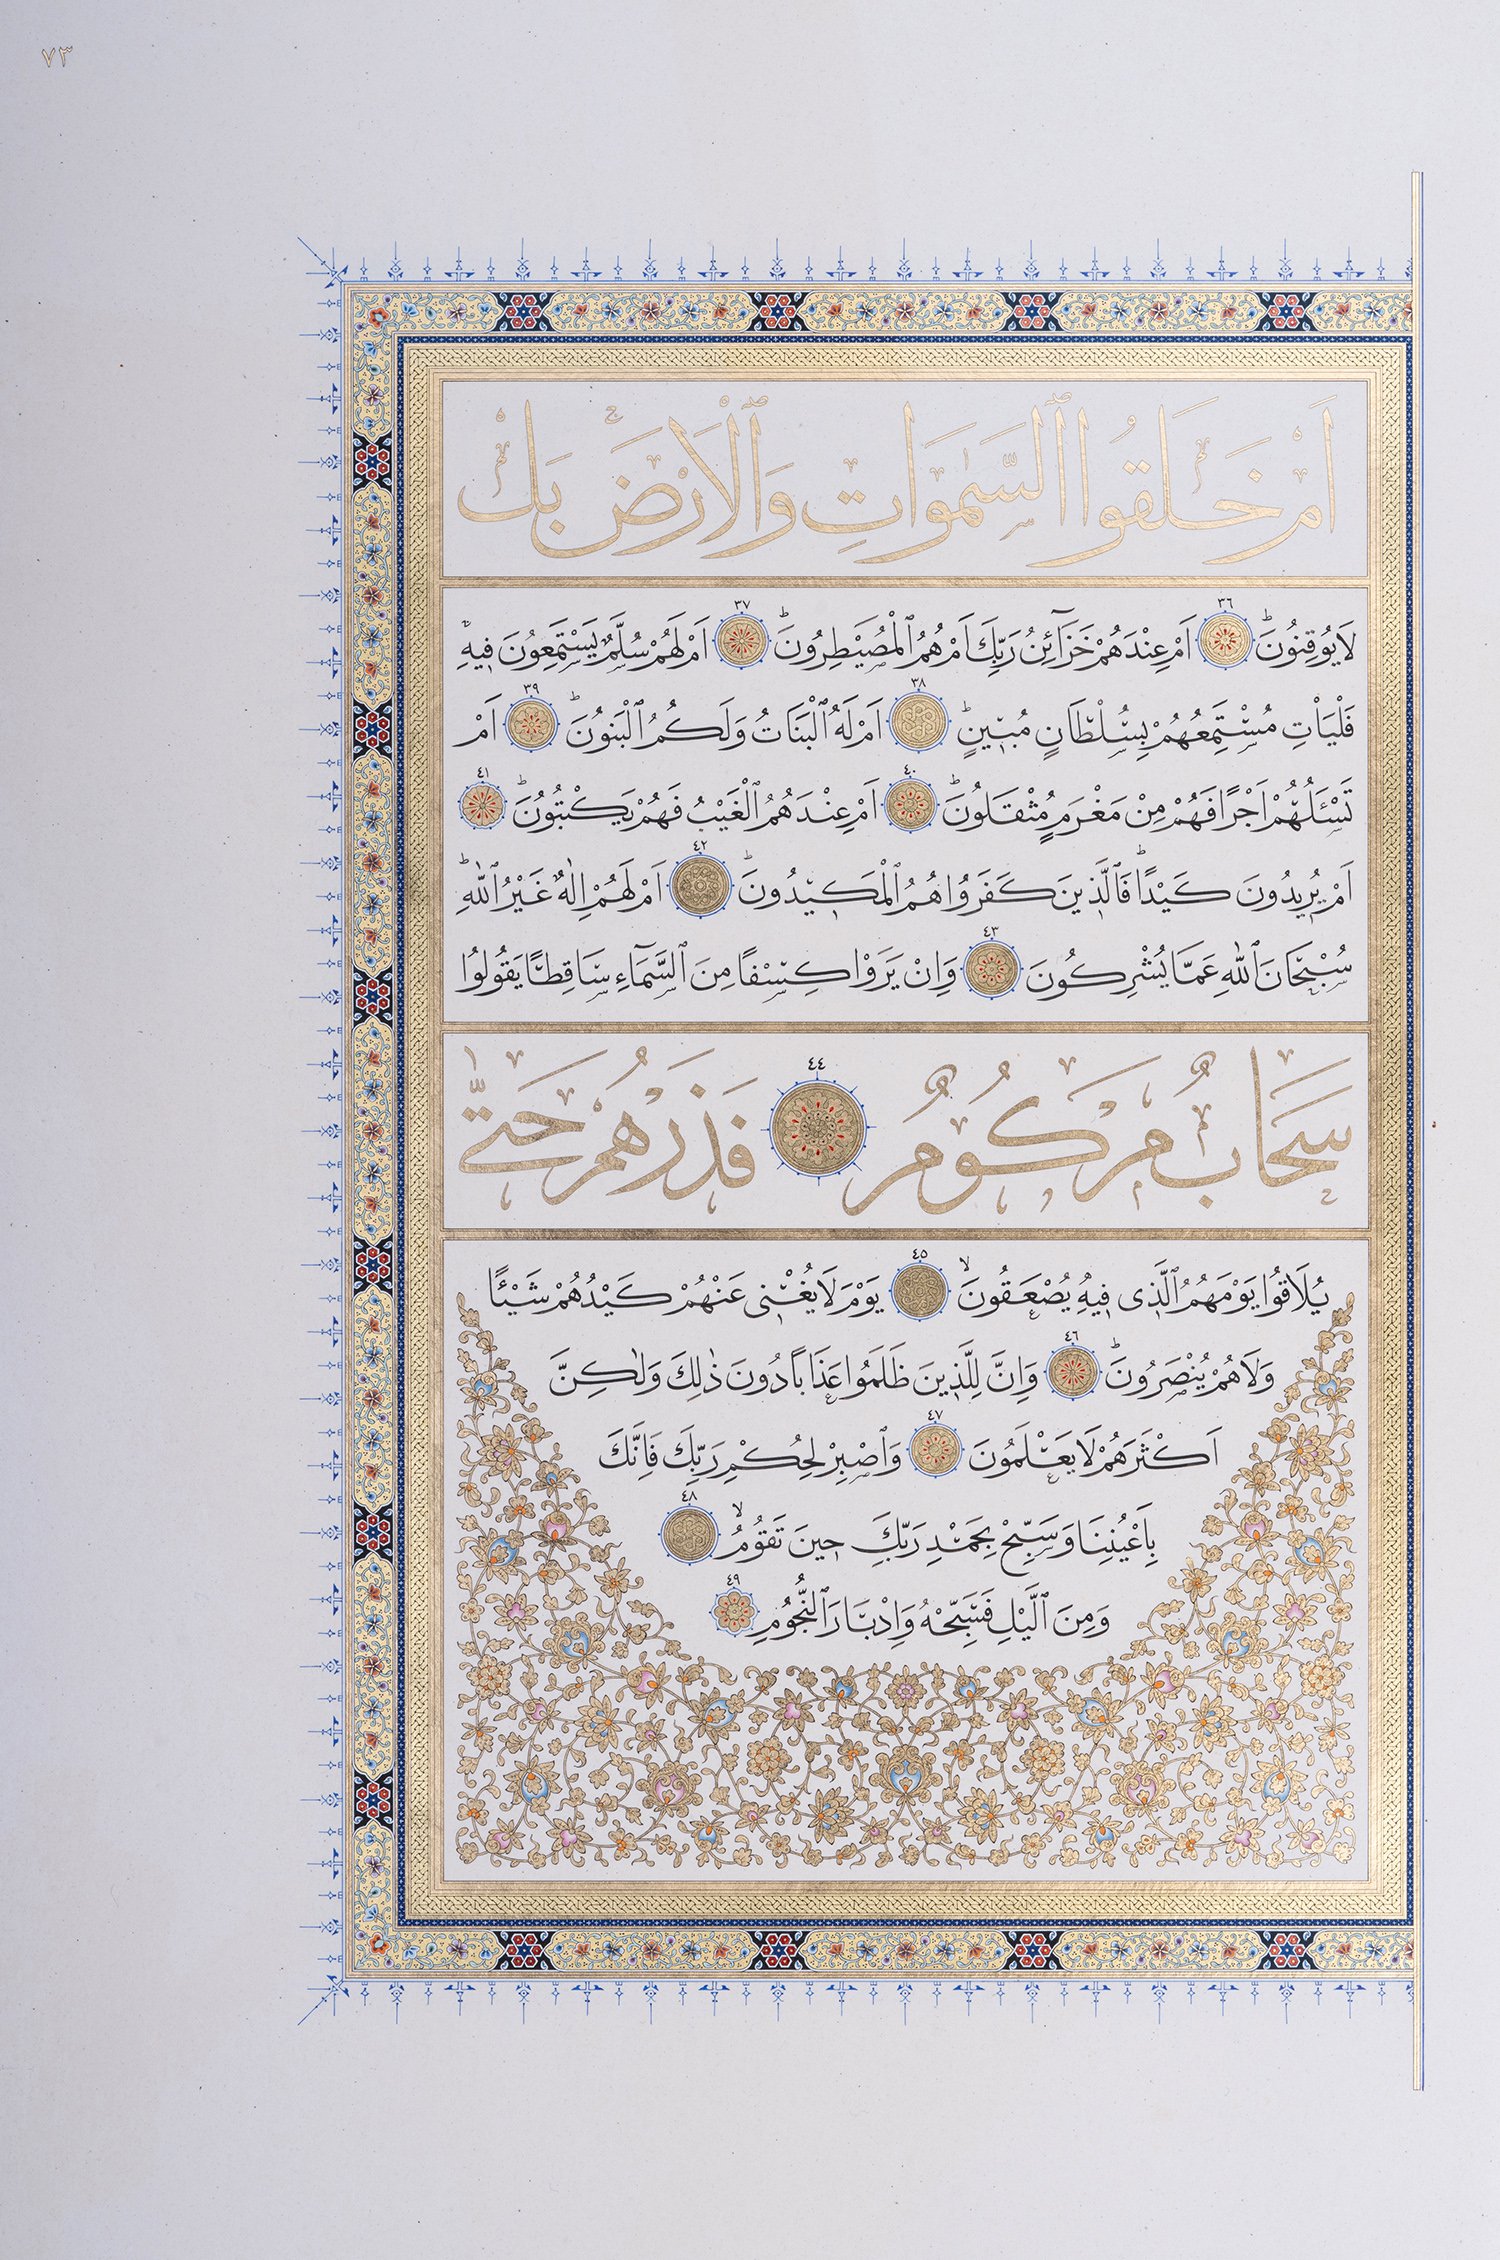 ٧٣
اَمْ خَلَقُوا السَّمٰوَاتِ وَالْاَرْضَۚ بَلْ
لَا يُوقِنُونَۜ ٣٦ اَمْ عِنْدَهُمْ خَزَٓائِنُ رَبِّكَ اَمْ هُمُ الْمُصَيْطِرُونَۜ ٣٧ اَمْ لَهُمْ سُلَّمٌ يَسْتَمِعُونَ فِيهِۚ
فَلْيَأْتِ مُسْتَمِعُهُمْ بِسُلْطَانٍ مُبِينٍۜ ٣٨ اَمْ لَهُ الْبَنَاتُ وَلَكُمُ الْبَنُونَۜ ٣٩ اَمْ
تَسْـَٔلُهُمْ اَجْرًا فَهُمْ مِنْ مَغْرَمٍ مُثْقَلُونَۜ ٤٠ اَمْ عِنْدَهُمُ الْغَيْبُ فَهُمْ يَكْتُبُونَۜ ٤١
اَمْ يُرِيدُونَ كَيْدًاۜ فَالَّذِينَ كَفَرُوا هُمُ الْمَكِيدُونَۜ ٤٢ اَمْ لَهُمْ اِلٰهٌ غَيْرُ اللّٰهِۜ
سُبْحَانَ اللّٰهِ عَمَّا يُشْرِكُونَ ٤٣ وَاِنْ يَرَوْا كِسْفًا مِنَ السَّمَٓاءِ سَاقِطًا يَقُولُوا
سَحَابٌ مَرْكُومٌ ٤٤ فَذَرْهُمْ حَتّٰى
يُلَاقُوا يَوْمَهُمُ الَّذِى فِيهِ يُصْعَقُونَۙ ٤٥ يَوْمَ لَا يُغْنِى عَنْهُمْ كَيْدُهُمْ شَيْـًٔا
وَلَا هُمْ يُنْصَرُونَۜ ٤٦ وَاِنَّ لِلَّذِينَ ظَلَمُوا عَذَابًا دُونَ ذٰلِكَ وَلٰكِنَّ
اَكْثَرَهُمْ لَا يَعْلَمُونَ ٤٧ وَاصْبِرْ لِحُكْمِ رَبِّكَ فَاِنَّكَ
بِاَعْيُنِنَا وَسَبِّحْ بِحَمْدِ رَبِّكَ حِينَ تَقُومُۙ ٤٨
وَمِنَ الَّيْلِ فَسَبِّحْهُ وَاِدْبَارَ النُّجُومِ ٤٩